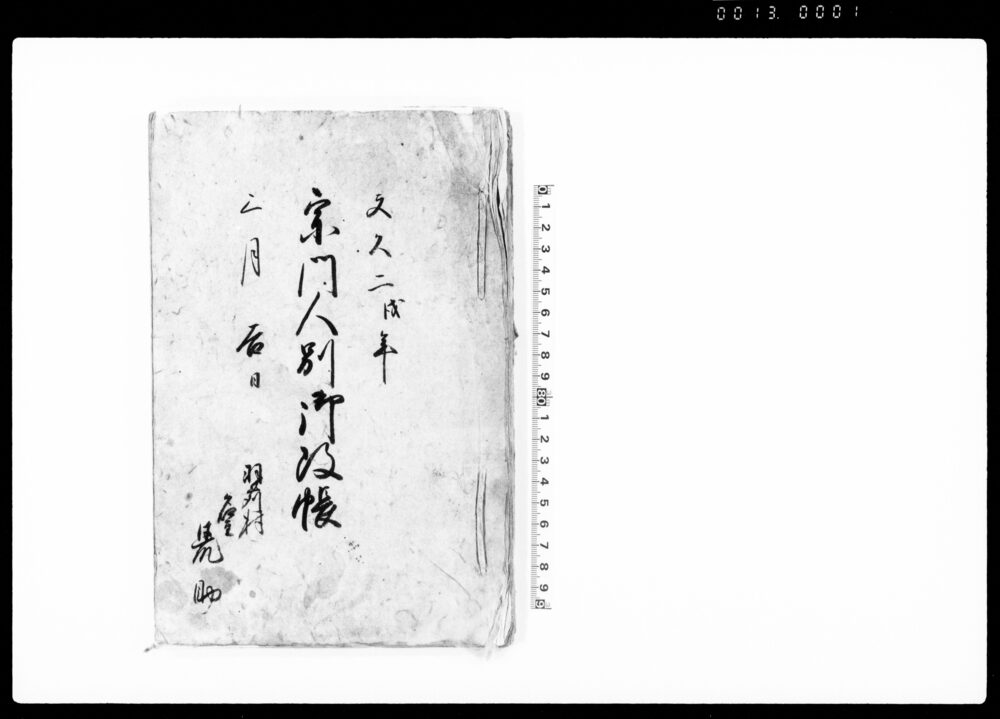 0013. 0001
文久二戌年
宗門人別御改帳
三月 日
村
助
0 1 2 3 4 5 6 7 8 9 10 1 2 3 4 5 6 7 8 9